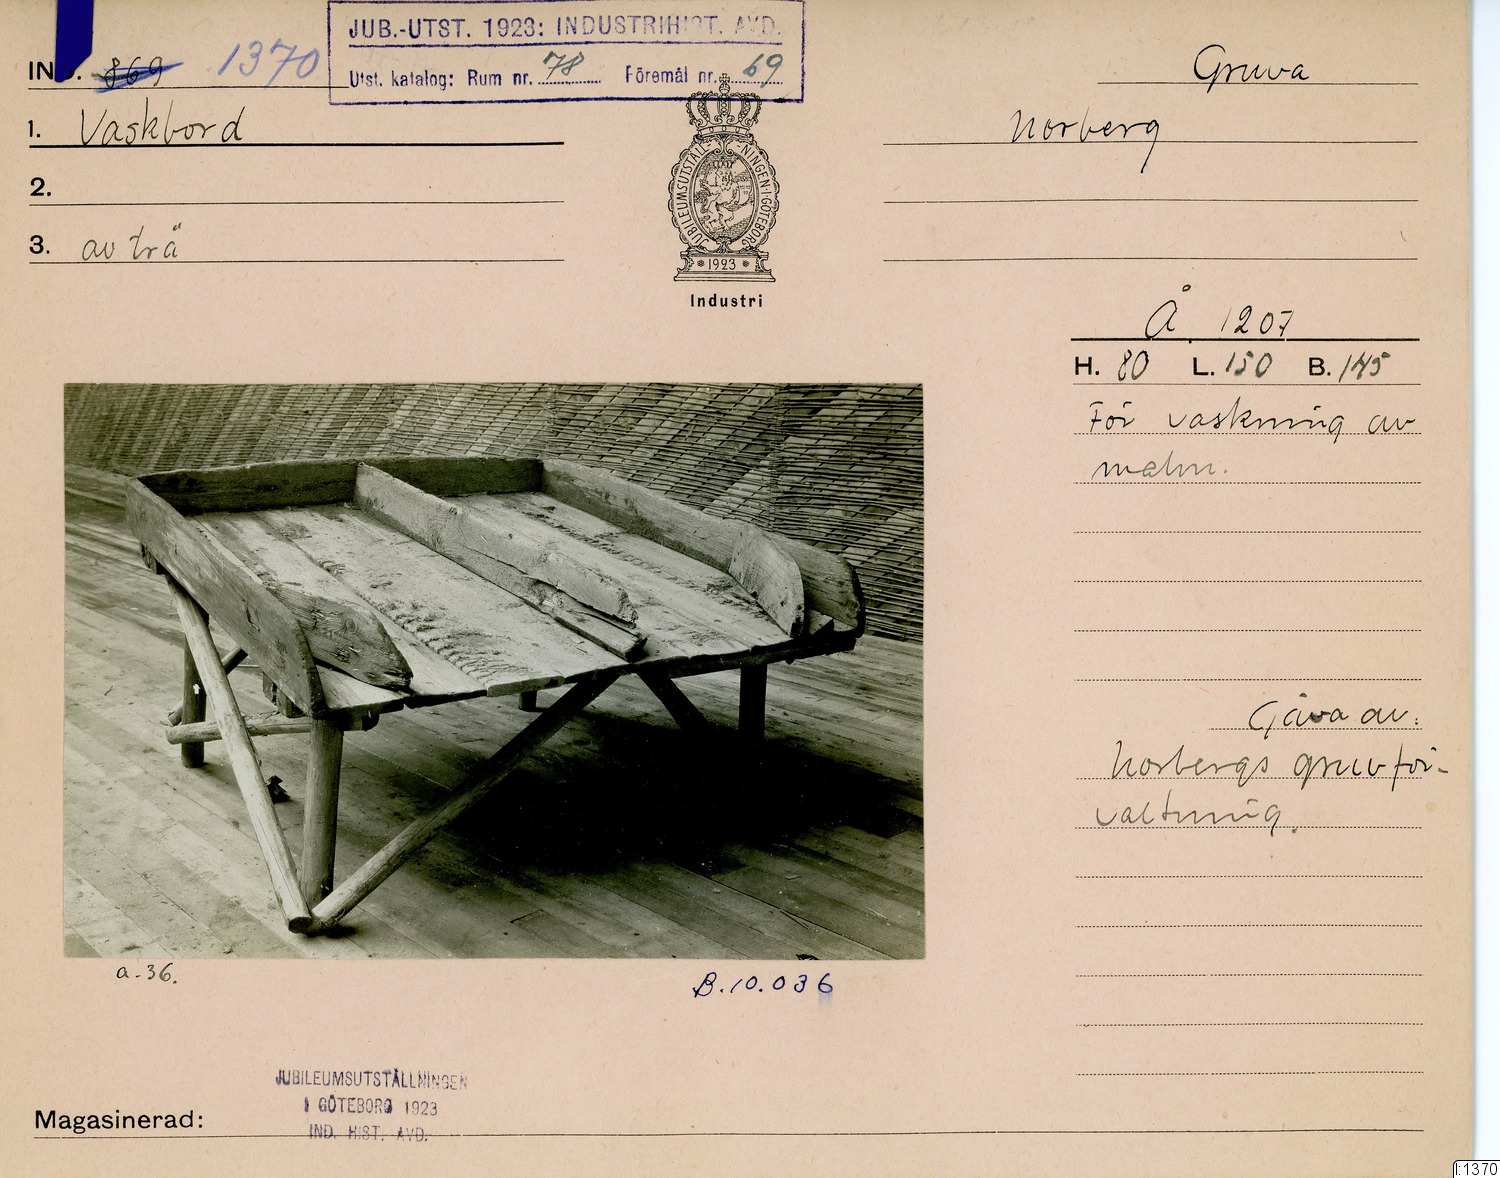 JUB.-UTST. 1923: INDUSTRIHIST. AVD.
Utst. katalog: Rum nr. 78 Föremål nr. 69
IND. 869 1370
Gruva
1. Vaskbord
Norberg
2.
3. av trä
JUBILEUMSUTSTÄLLNINGEN I GÖTEBORG
1923
Industri
Å 1207
H. 80 L. 150 B. 145
För vaskning av
malm.
Gåva av:
Norbergs gruvför-
valtning.
a.36.
B.10.036
JUBILEUMSUTSTÄLLNINGEN
I GÖTEBORG 1923
IND. HIST. AVD.
Magasinerad:
I:1370